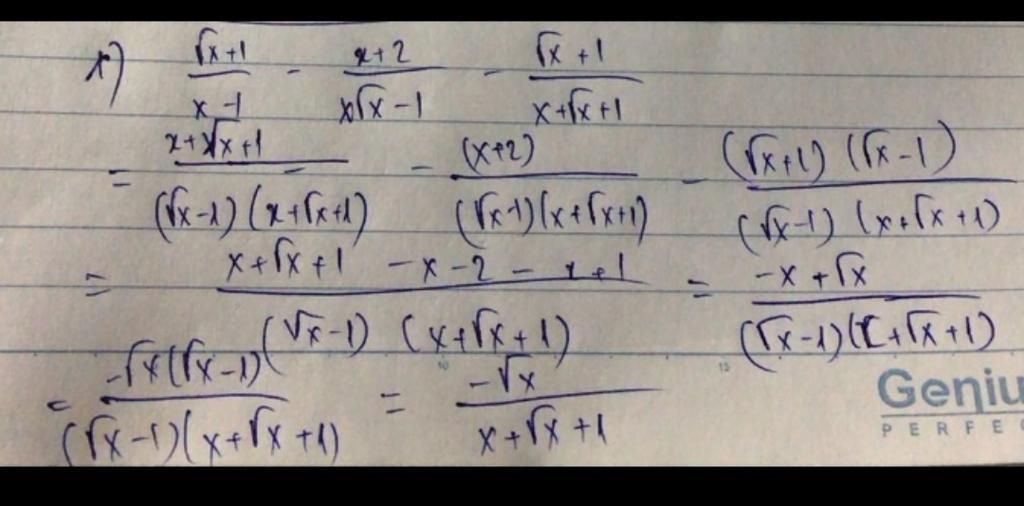 r) (√x+1)/(x-1) - (x+2)/(x√x-1) - (√x+1)/(x+√x+1)
= (x+√x+1)/((√x-1)(x+√x+1)) - (x+2)/((√x-1)(x+√x+1)) - (√x+1)(√x-1)/((√x-1)(x+√x+1))
= (x+√x+1-x-2-x+1)/((√x-1)(x+√x+1)) = (-x+√x)/((√x-1)(x+√x+1))
= -√x(√x-1)/((√x-1)(x+√x+1)) = -√x/(x+√x+1)
Geniu
PERFEC